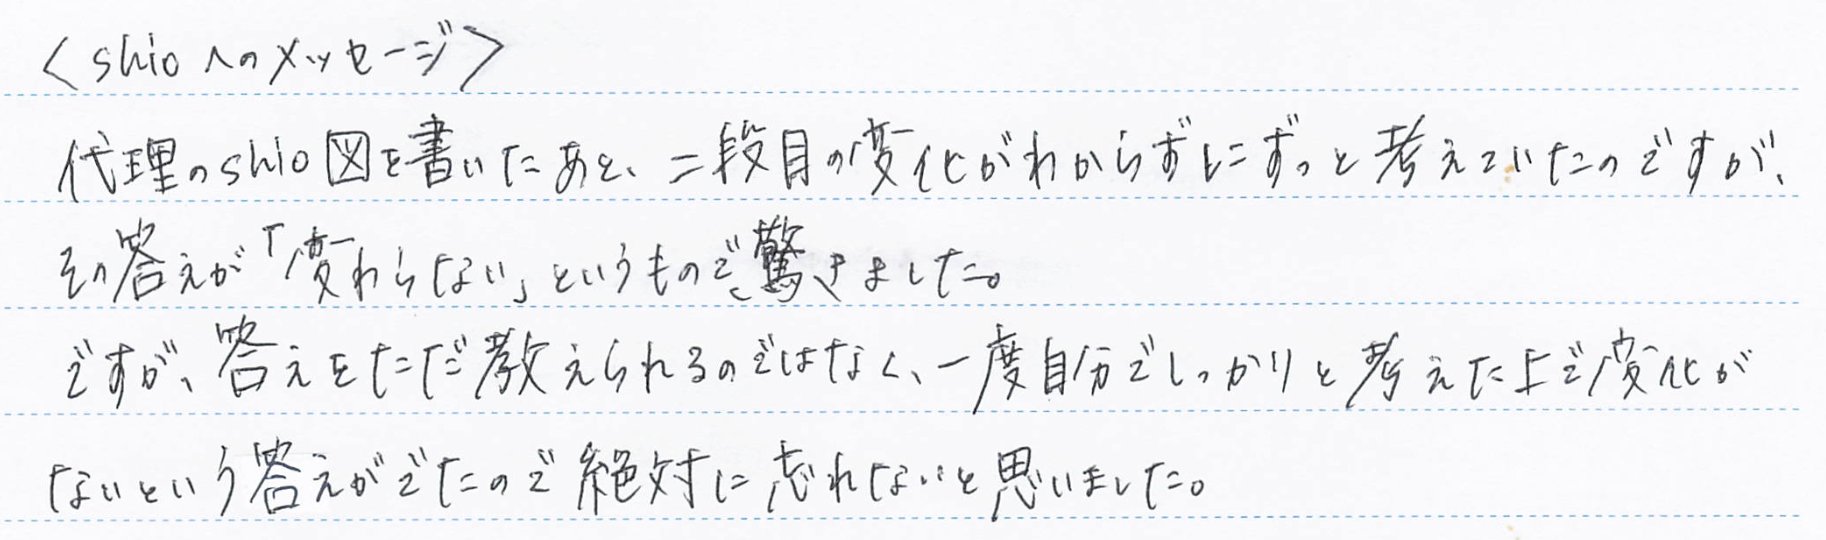 <shioへのメッセージ>
代理のshio図を書いたあと、二段目の変化がわからずにずっと考えていたのですが、
その答えが「変わらない」というもので驚きました。
ですが、答えをただ教えられるのではなく、一度自分でしっかりと考えた上で変化が
ないという答えがでたので絶対に忘れないと思いました。